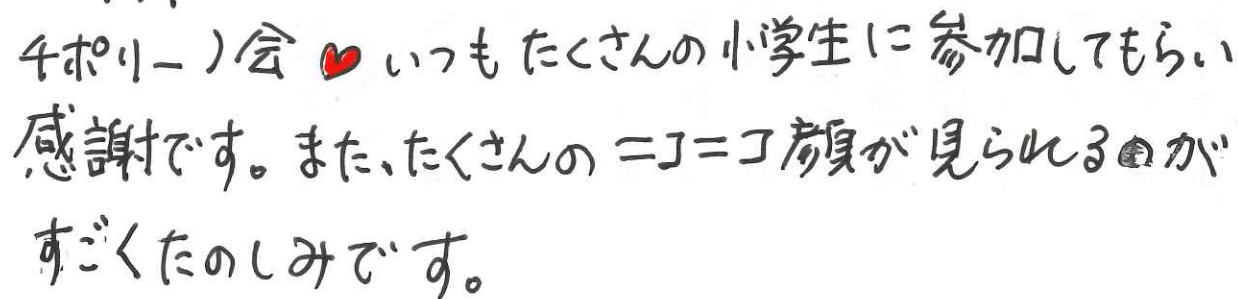 チポリーノ会♥いつもたくさんの小学生に参加してもらい
感謝です。また、たくさんのニコニコ顔が見られるのが
すごくたのしみです。